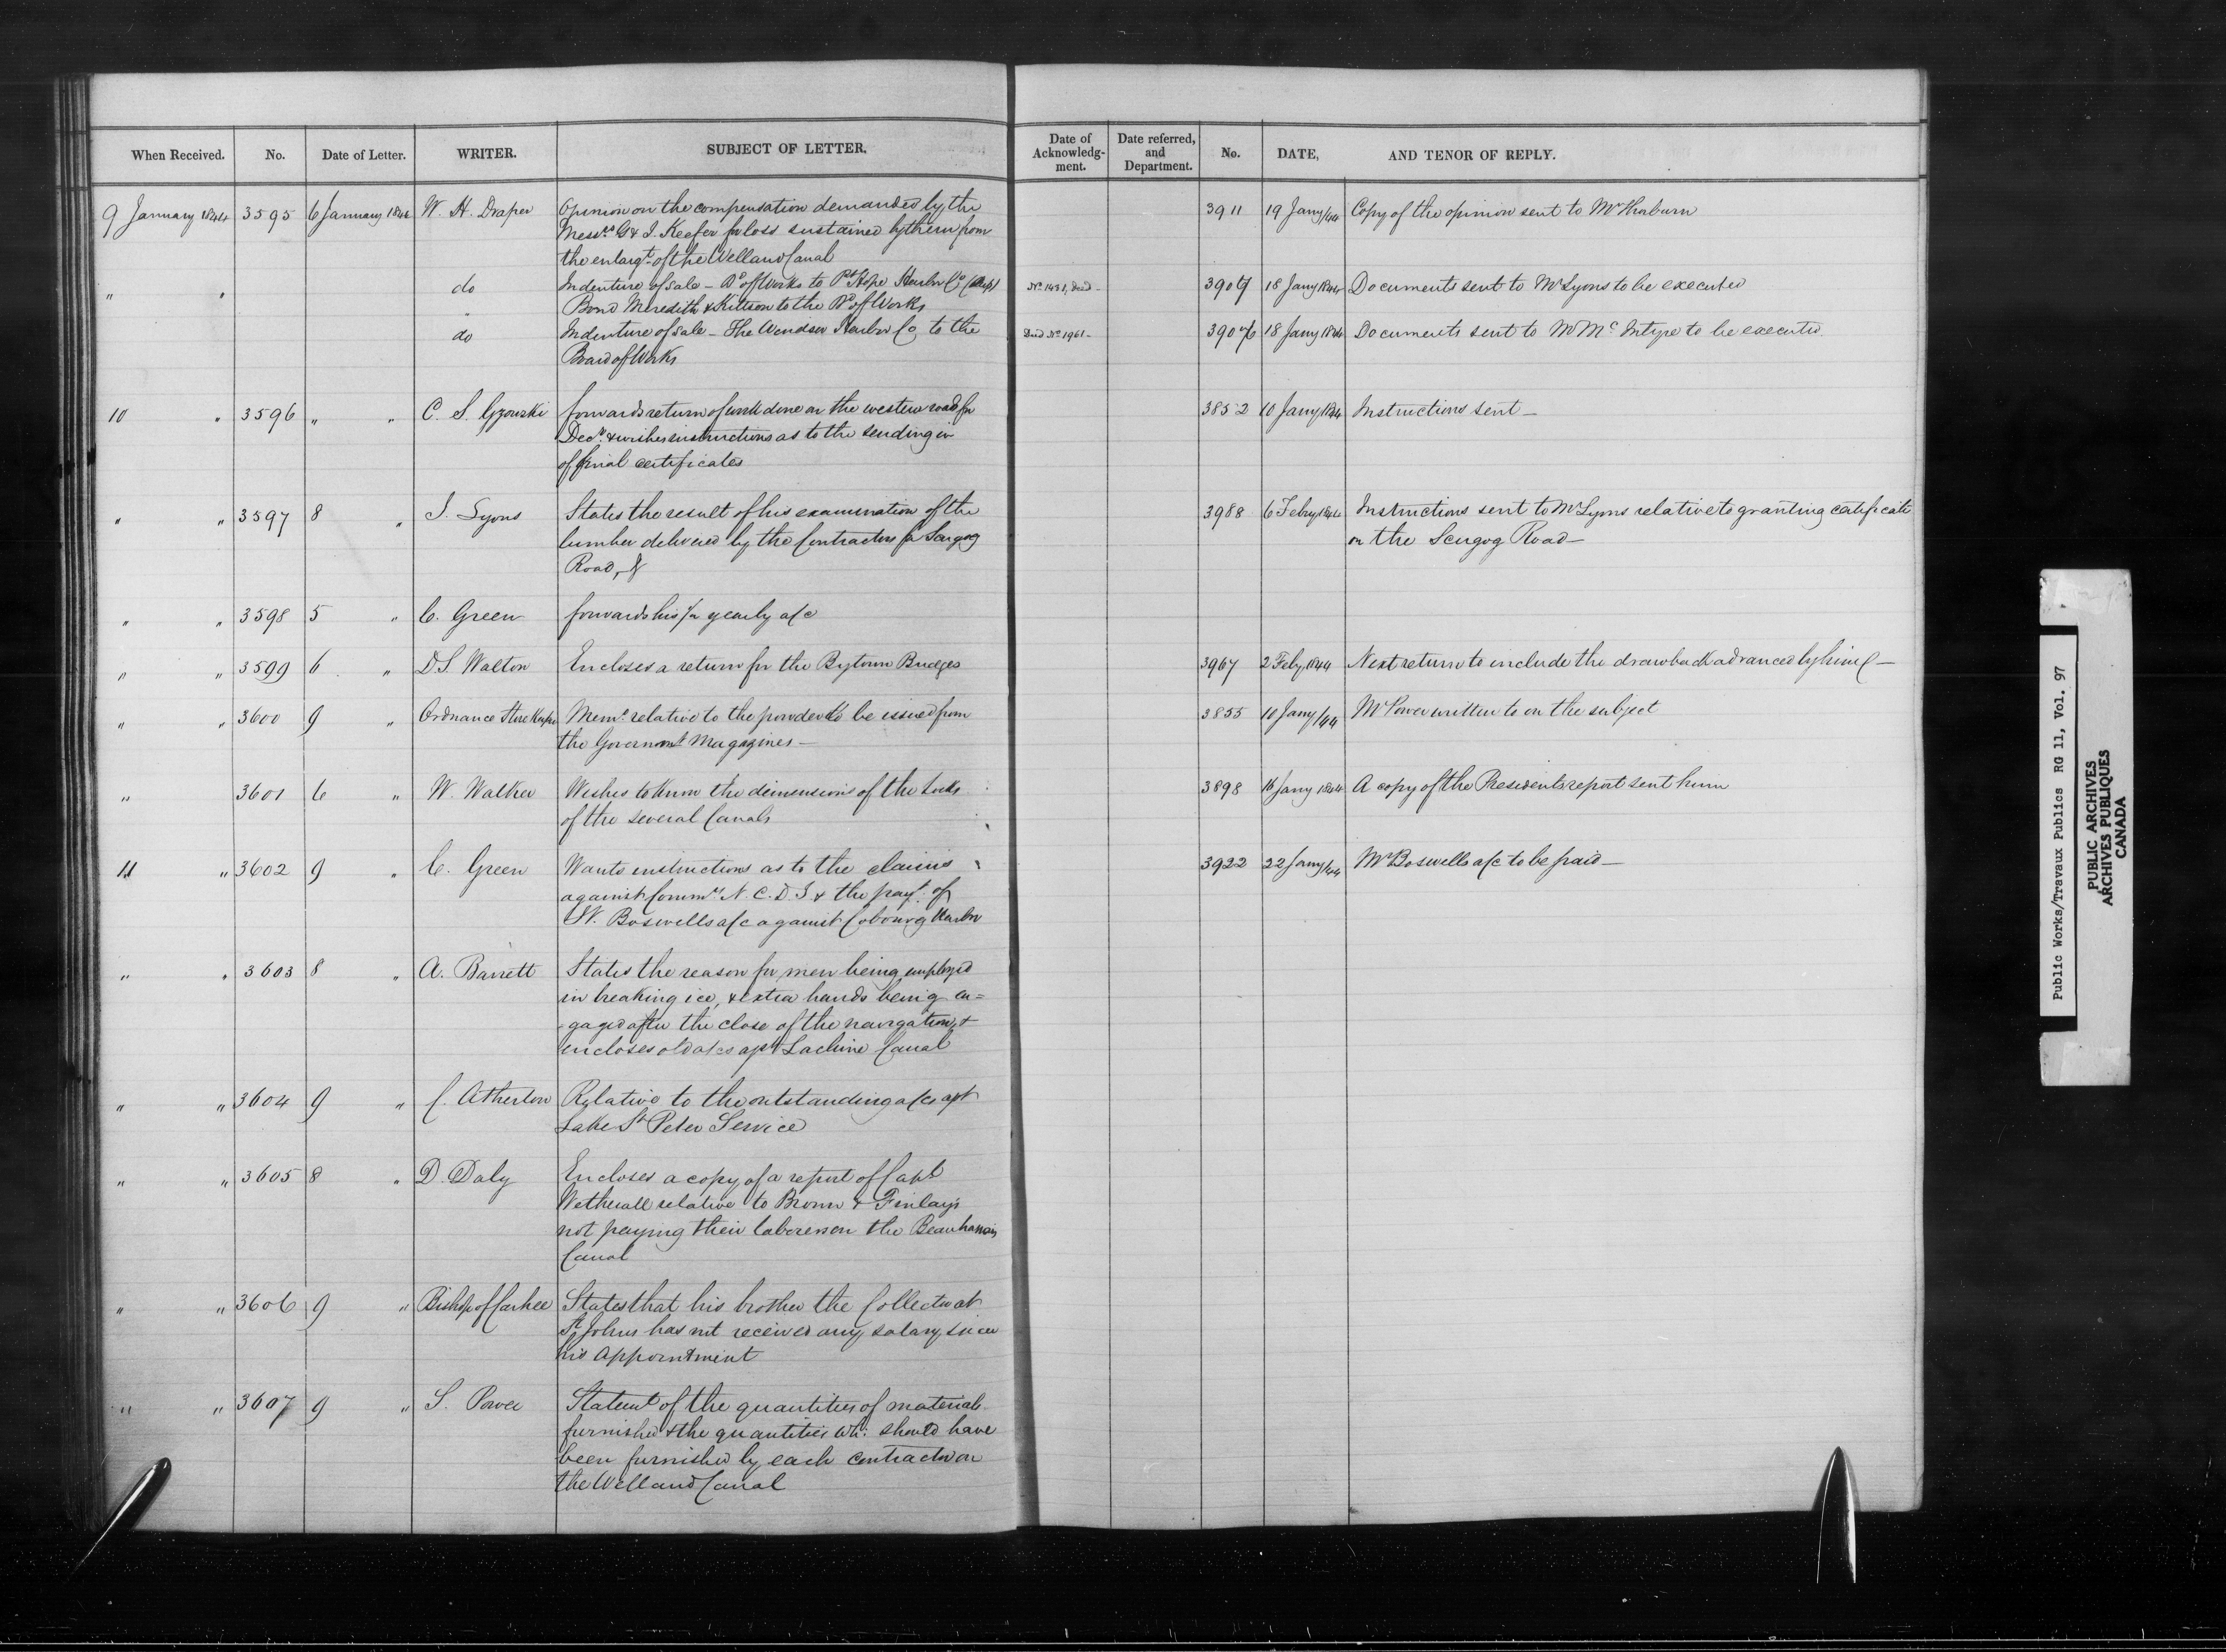 When Received. No. Date of Letter. WRITER. SUBJECT OF LETTER.
9 January 1844 3595 6 January 1844 W. H. Draper Opinion on the compensation demanded by the
Messrs G & J. Keefer for loss sustained by them from
the enlargt. of the Welland Canal
" " do Indenture of Sale - Bd of Works to Pt Hope Harbor Co
" Bond Meredith & Kittson to the Bd of Works
do Indenture of Sale - The Windsor Harbor Co to the
Board of Works
10 " 3596 " " C. S. Gzowski forwards return of work done on the western road for
Decr. & wishes instructions as to the sending in
of final certificates
" " 3597 8 " J. Lyons States the result of his examination of the
lumber delivered by the Contractors for Scugog
Road, &
" " 3598 5 " C. Green forwards his 1/2 yearly a/c
" " 3599 6 " D.S. Walton Encloses a return for the Bytown Bridges
" " 3600 9 " Ordnance Store Keeper Memo. relative to the powder to be issued from
the Governmt Magazines -
" 3601 6 " W. Walker Wishes to know the dimensions of the Locks
of the several Canals
11 " 3602 9 " C. Green Wants instructions as to the claims
against Commrs N. C. D. & the payt. of
W. Boswells a/c against Cobourg Harbor
" " 3603 8 " A. Barrett States the reason for men being employed
in breaking ice, & extra hands being en=
gaged after the close of the navigation, &
encloses old a/cs agst Lachine Canal
" " 3604 9 " C. Atherton Relative to the outstanding a/cs agst
Lake St Peter Service
" " 3605 8 " D. Daly Encloses a copy of a report of Capt
Wetherall relative to Brown & Finlay's
not paying their laborers on the Beauharnois
Canal
" " 3606 9 " Bishop of States that his brother the Collector at
St Johns has not received any salary since
his appointment
" " 3607 9 " S. Power Statemt of the quantities of materials
furnished & the quantities wh: should have
been furnished by each contractor on
the Welland Canal
Date of Acknowledg-ment. Date referred, and Department. No. DATE, AND TENOR OF REPLY.
3911 19 Jany/44 Copy of the opinion sent to Mr Thorburn
3907 18 Jany 1844 Documents sent to Mr Lyons to be executed
Deed No 1961 - 18 Jany 1844 Documents sent to Mr McIntyre to be executed.
3852 10 Jany 1844 Instructions sent -
3988 6 Febry 1844 Instructions sent to Mr Lyons relative to granting certificate
on the Scugog Road -
3967 2 Feby 1844 Next return to include the drawback advanced by him -
3855 10 Jany/44 Mr Power written to on the subject
3898 16 Jany 1844 A copy of the Presidents report sent him
3922 22 Jany/44 Mr Boswells a/c to be paid -
Public Works/Travaux Publics RG 11, Vol. 97
PUBLIC ARCHIVES
ARCHIVES PUBLIQUES
CANADA